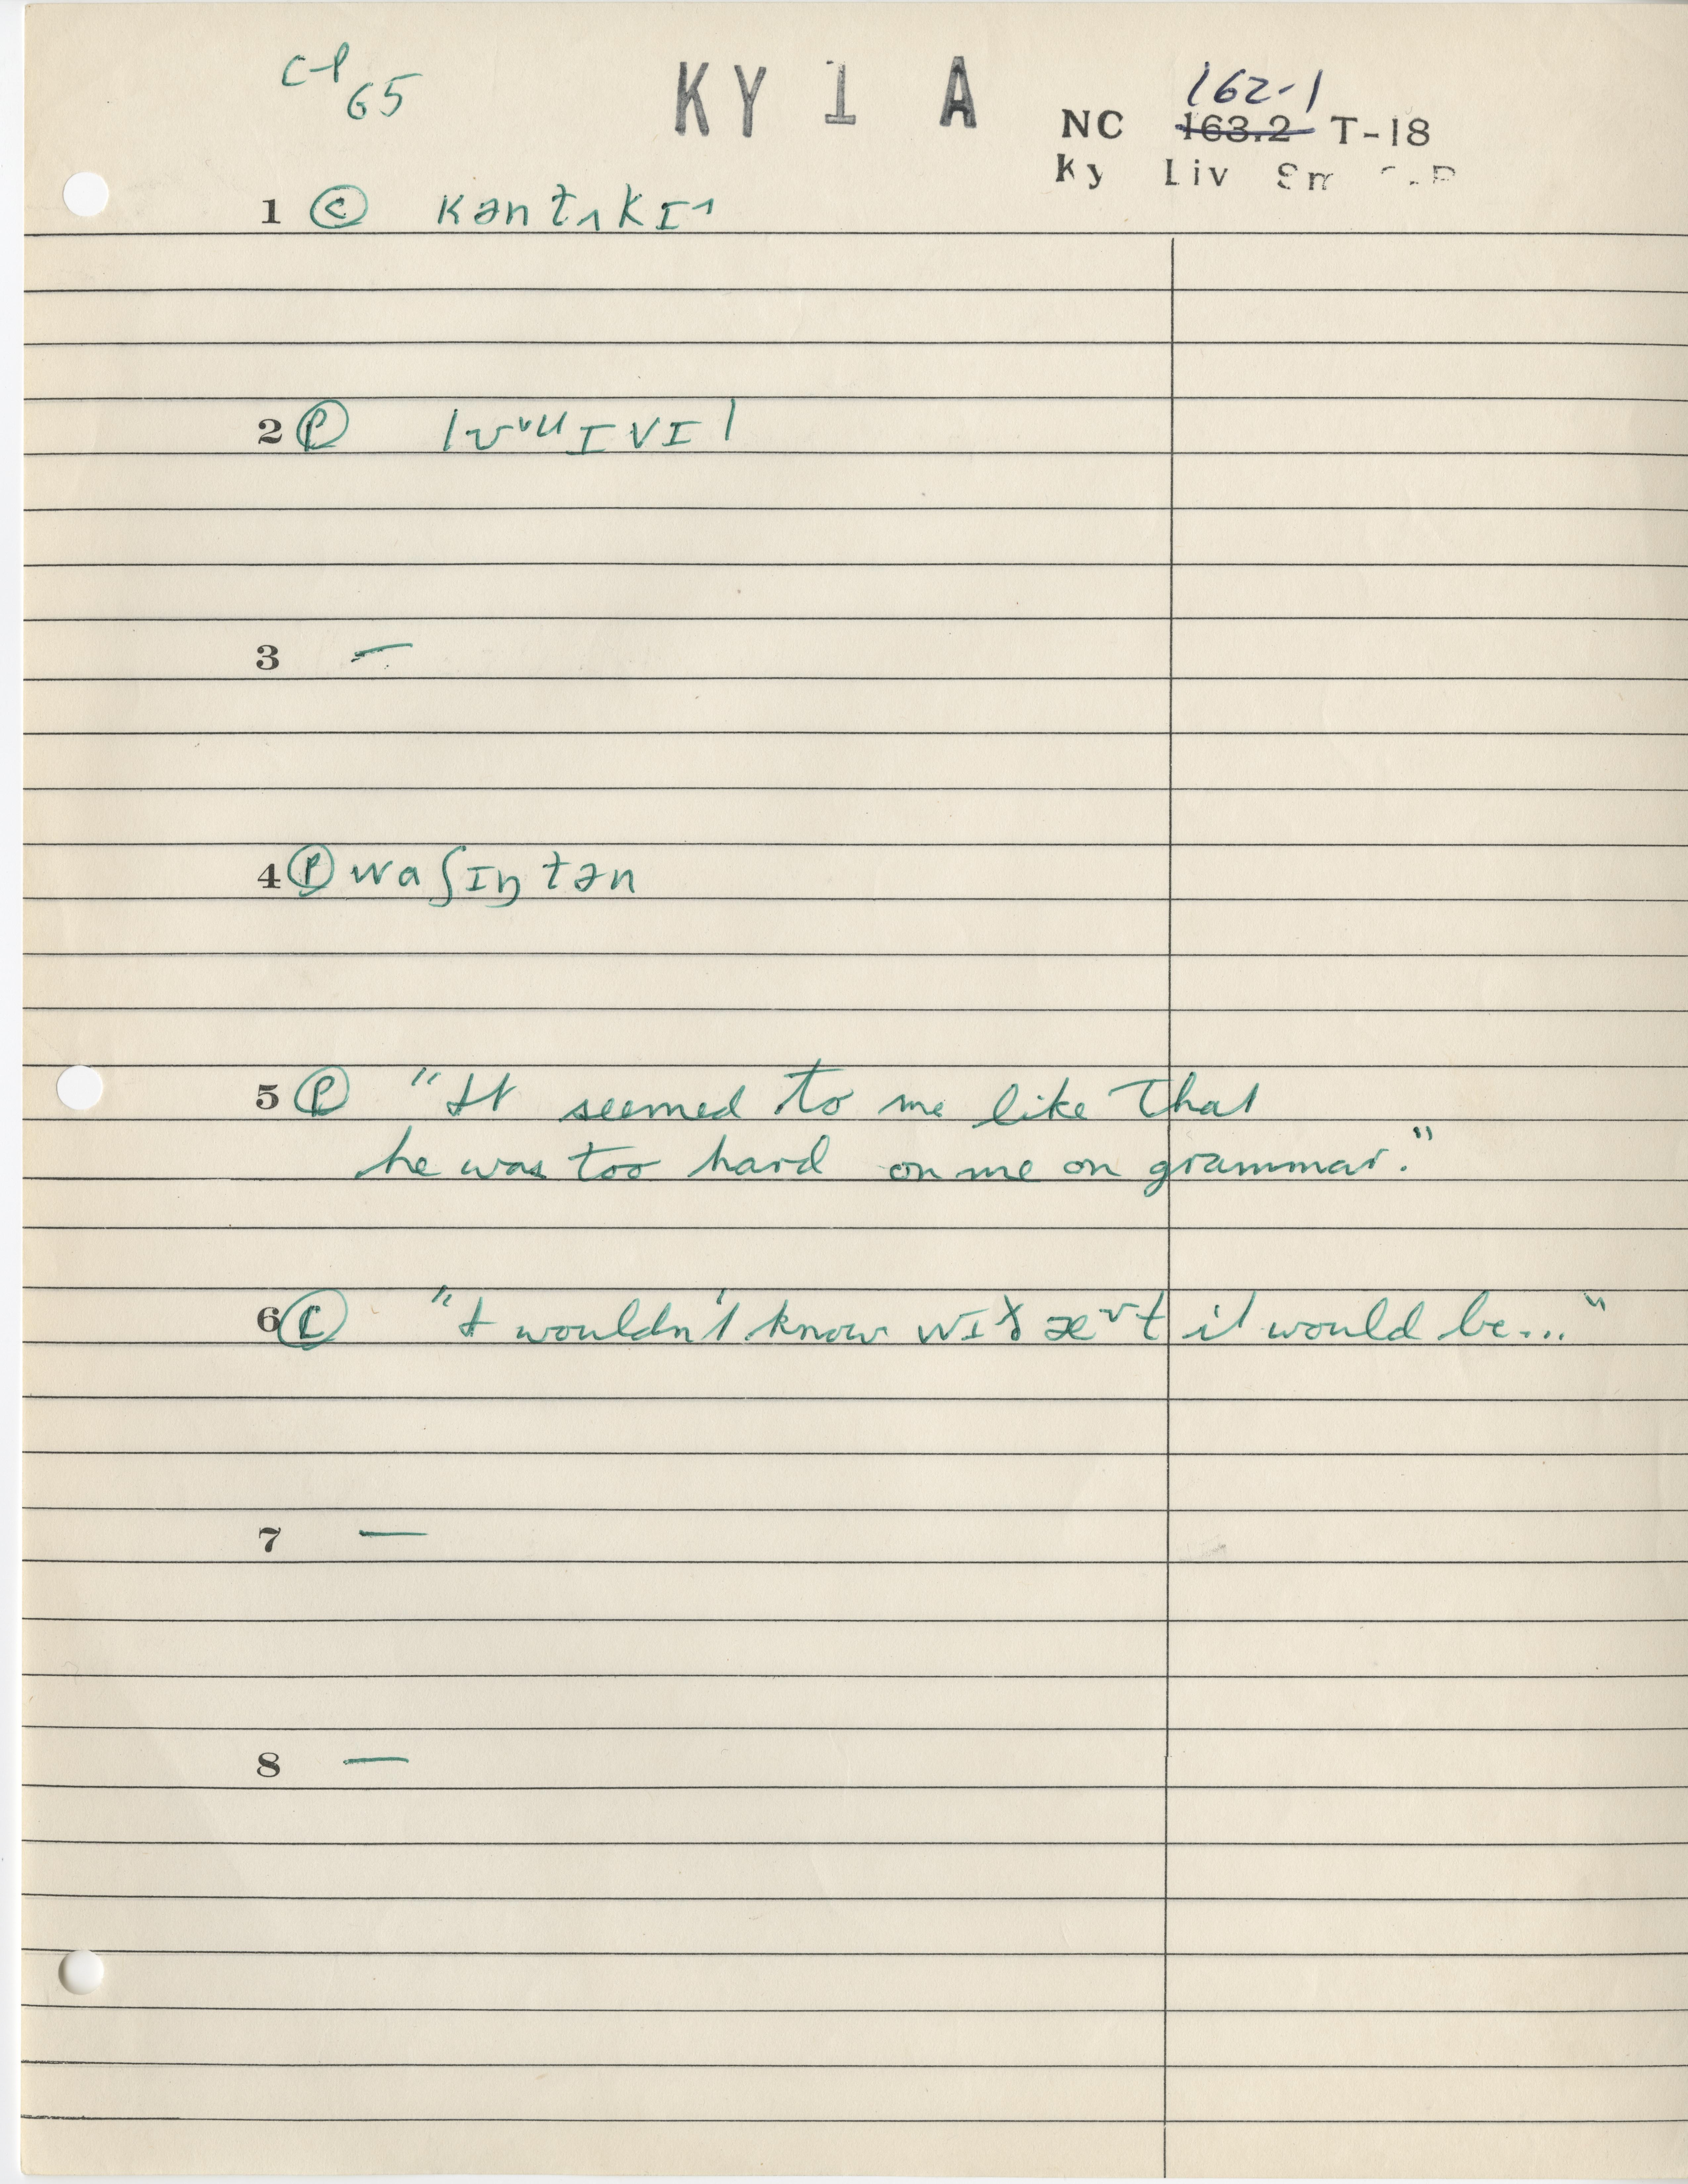 CP
65
KY 1 A
162-1
NC 163.2 T-18
Ky Liv Sm
1 Ⓒ kəntʌkɪ˄
2 Ⓟ lʊᵛᵘɪvɪl
3 —
4 Ⓟ waʃɪŋtən
5 Ⓟ "It seemed to me like that
he was too hard on me on grammar."
6 Ⓒ "I wouldn't know wɪðæᵛt it would be..."
7 —
8 —